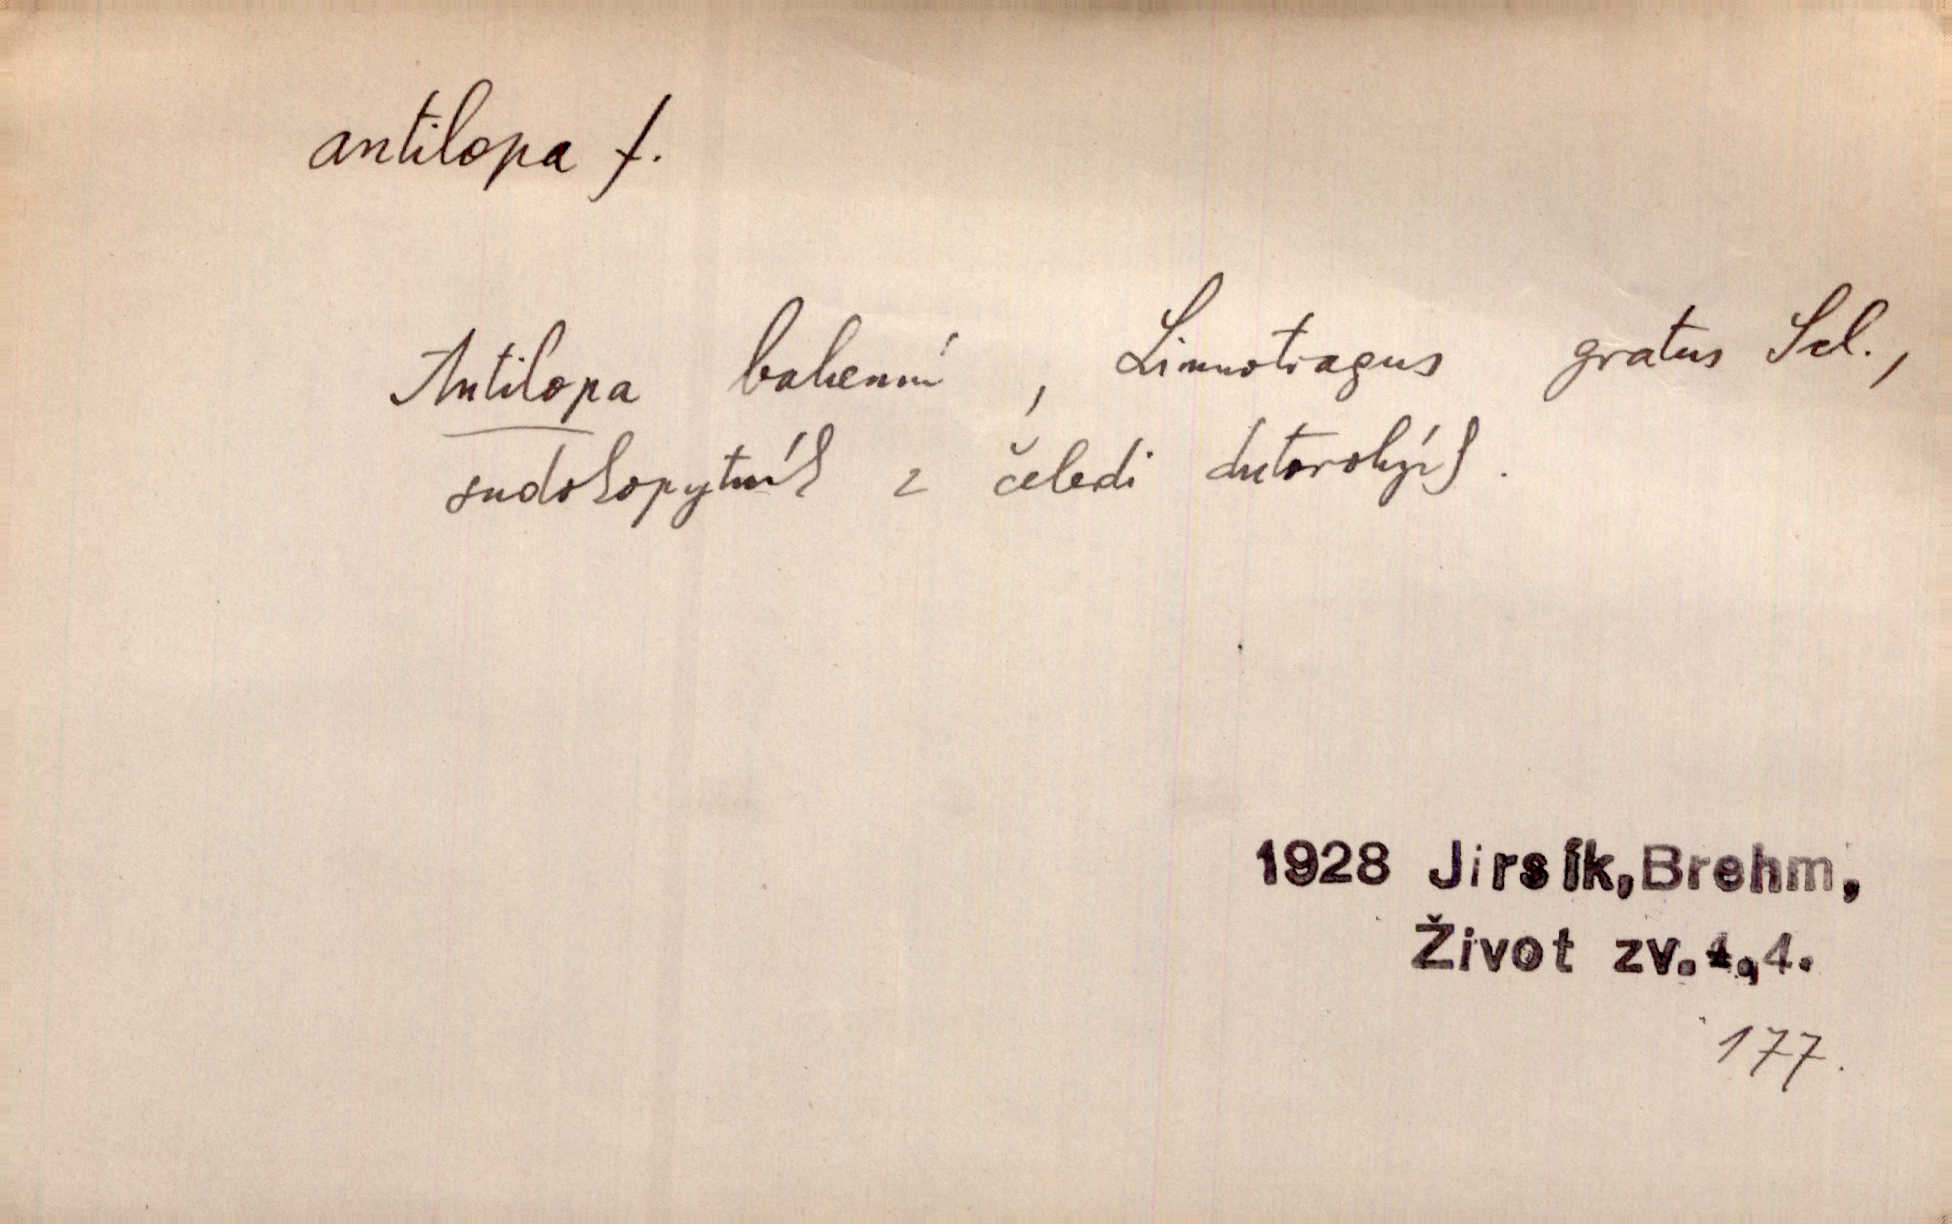 antilopa f.
Antilopa bahenní, Limnotragus gratus Scl.,
sudokopytník z čeledi dutorohých.
1928 Jirsík, Brehm,
Život zv. 4.
177.